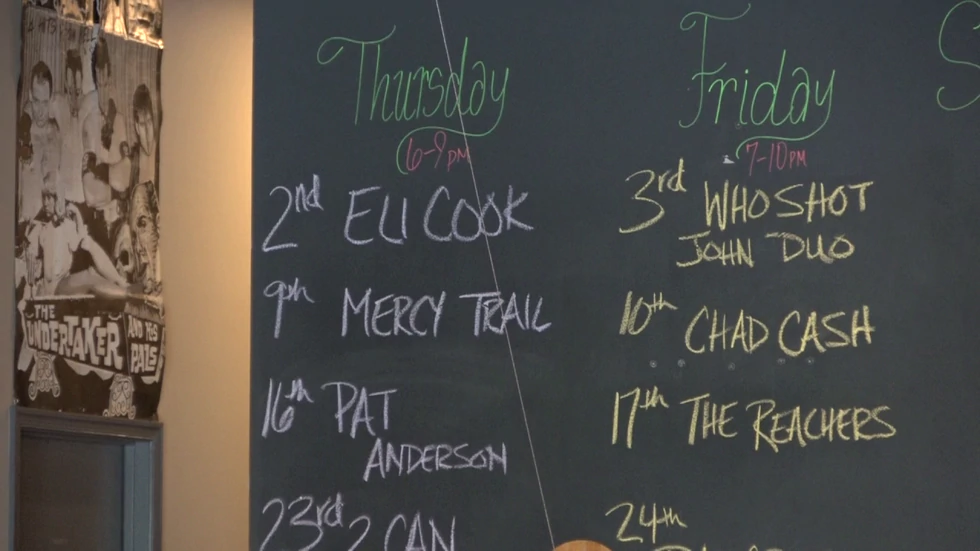 THE
UNDERTAKER
AND HIS
PALS
Thursday
6-9PM
2nd ELI COOK
9th MERCY TRAIL
16th PAT
ANDERSON
23rd 2 CAN
Friday
7-10PM
3rd WHO SHOT
JOHN DUO
10th CHAD CASH
17th THE REACHERS
24th
S